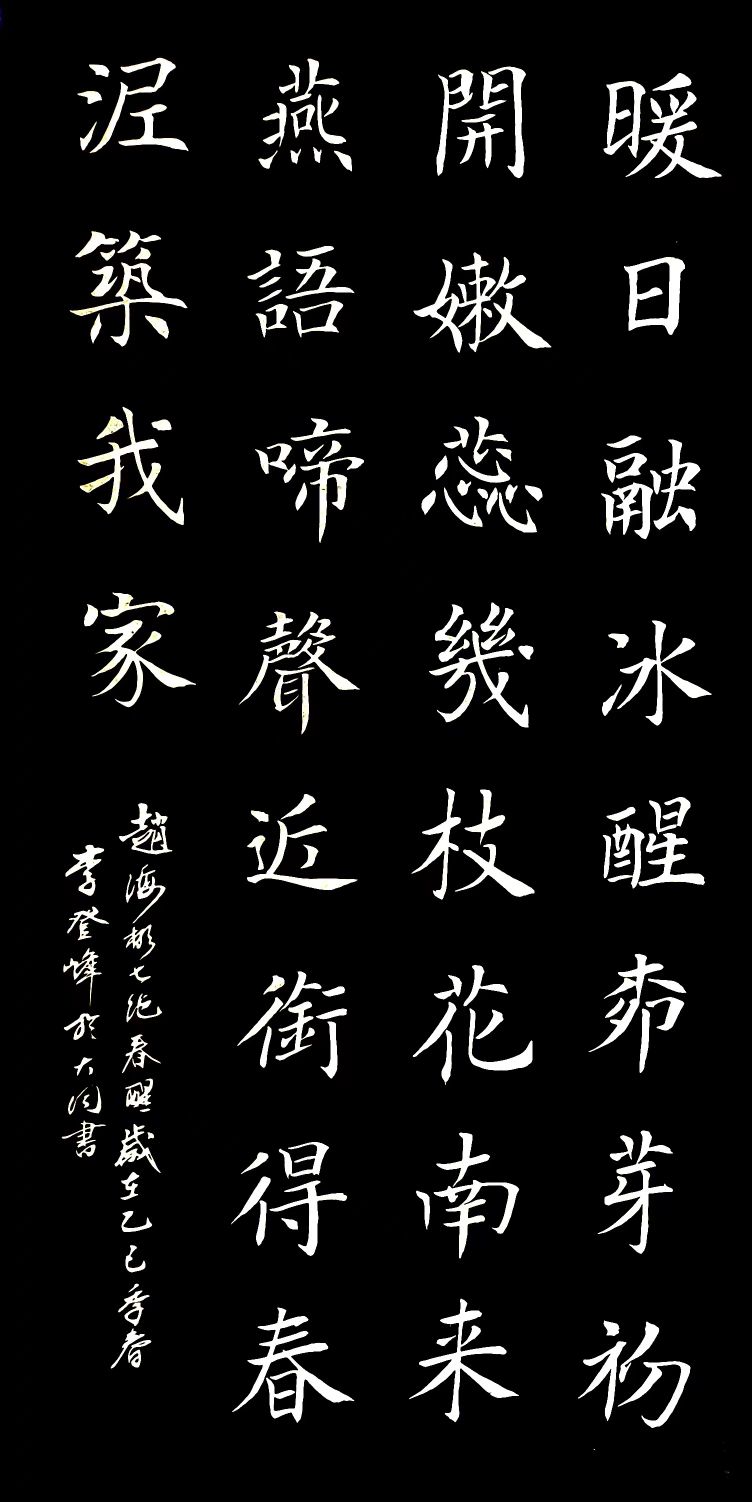 暖日融冰醒柳芽初
開嫩蕊幾枝花南来
燕語啼聲近銜得春
泥築我家
趙海彬七绝春醒歲在乙巳季春
李登峰於大同書